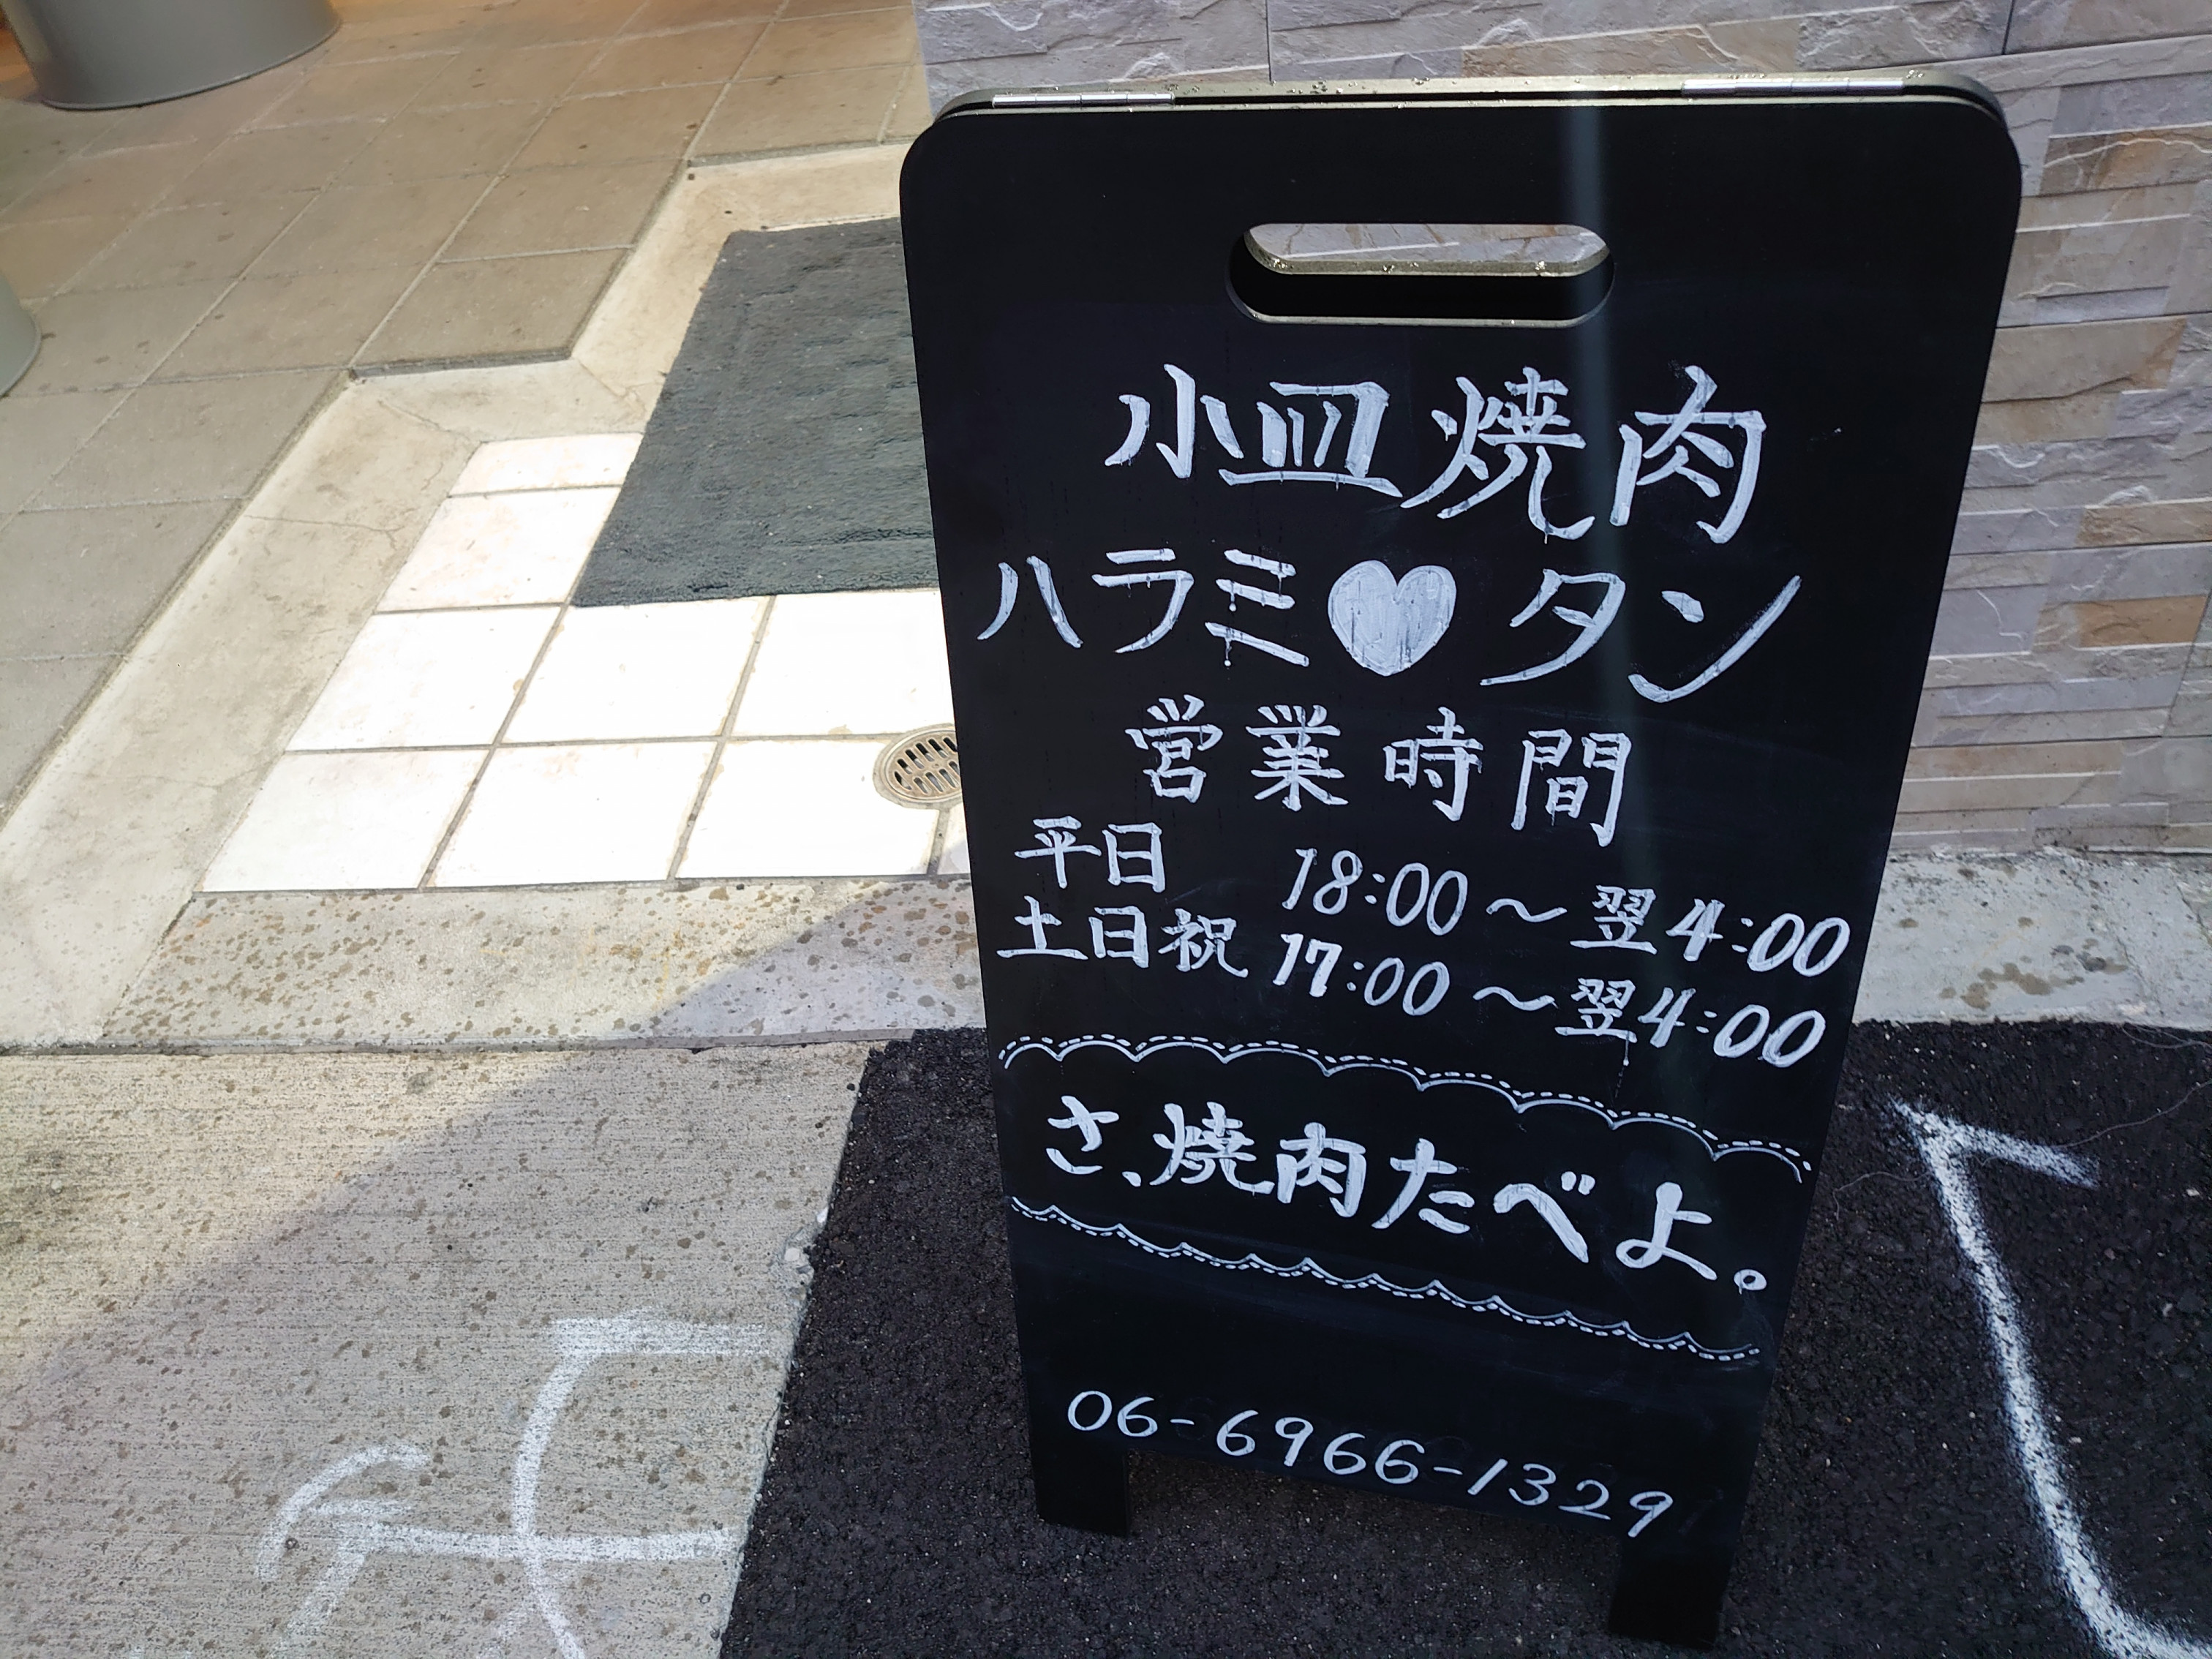 小皿焼肉
ハラミ♥タン
営業時間
平日 18:00～翌4:00
土日祝 17:00～翌4:00
さ、焼肉たべよ。
06-6966-1329